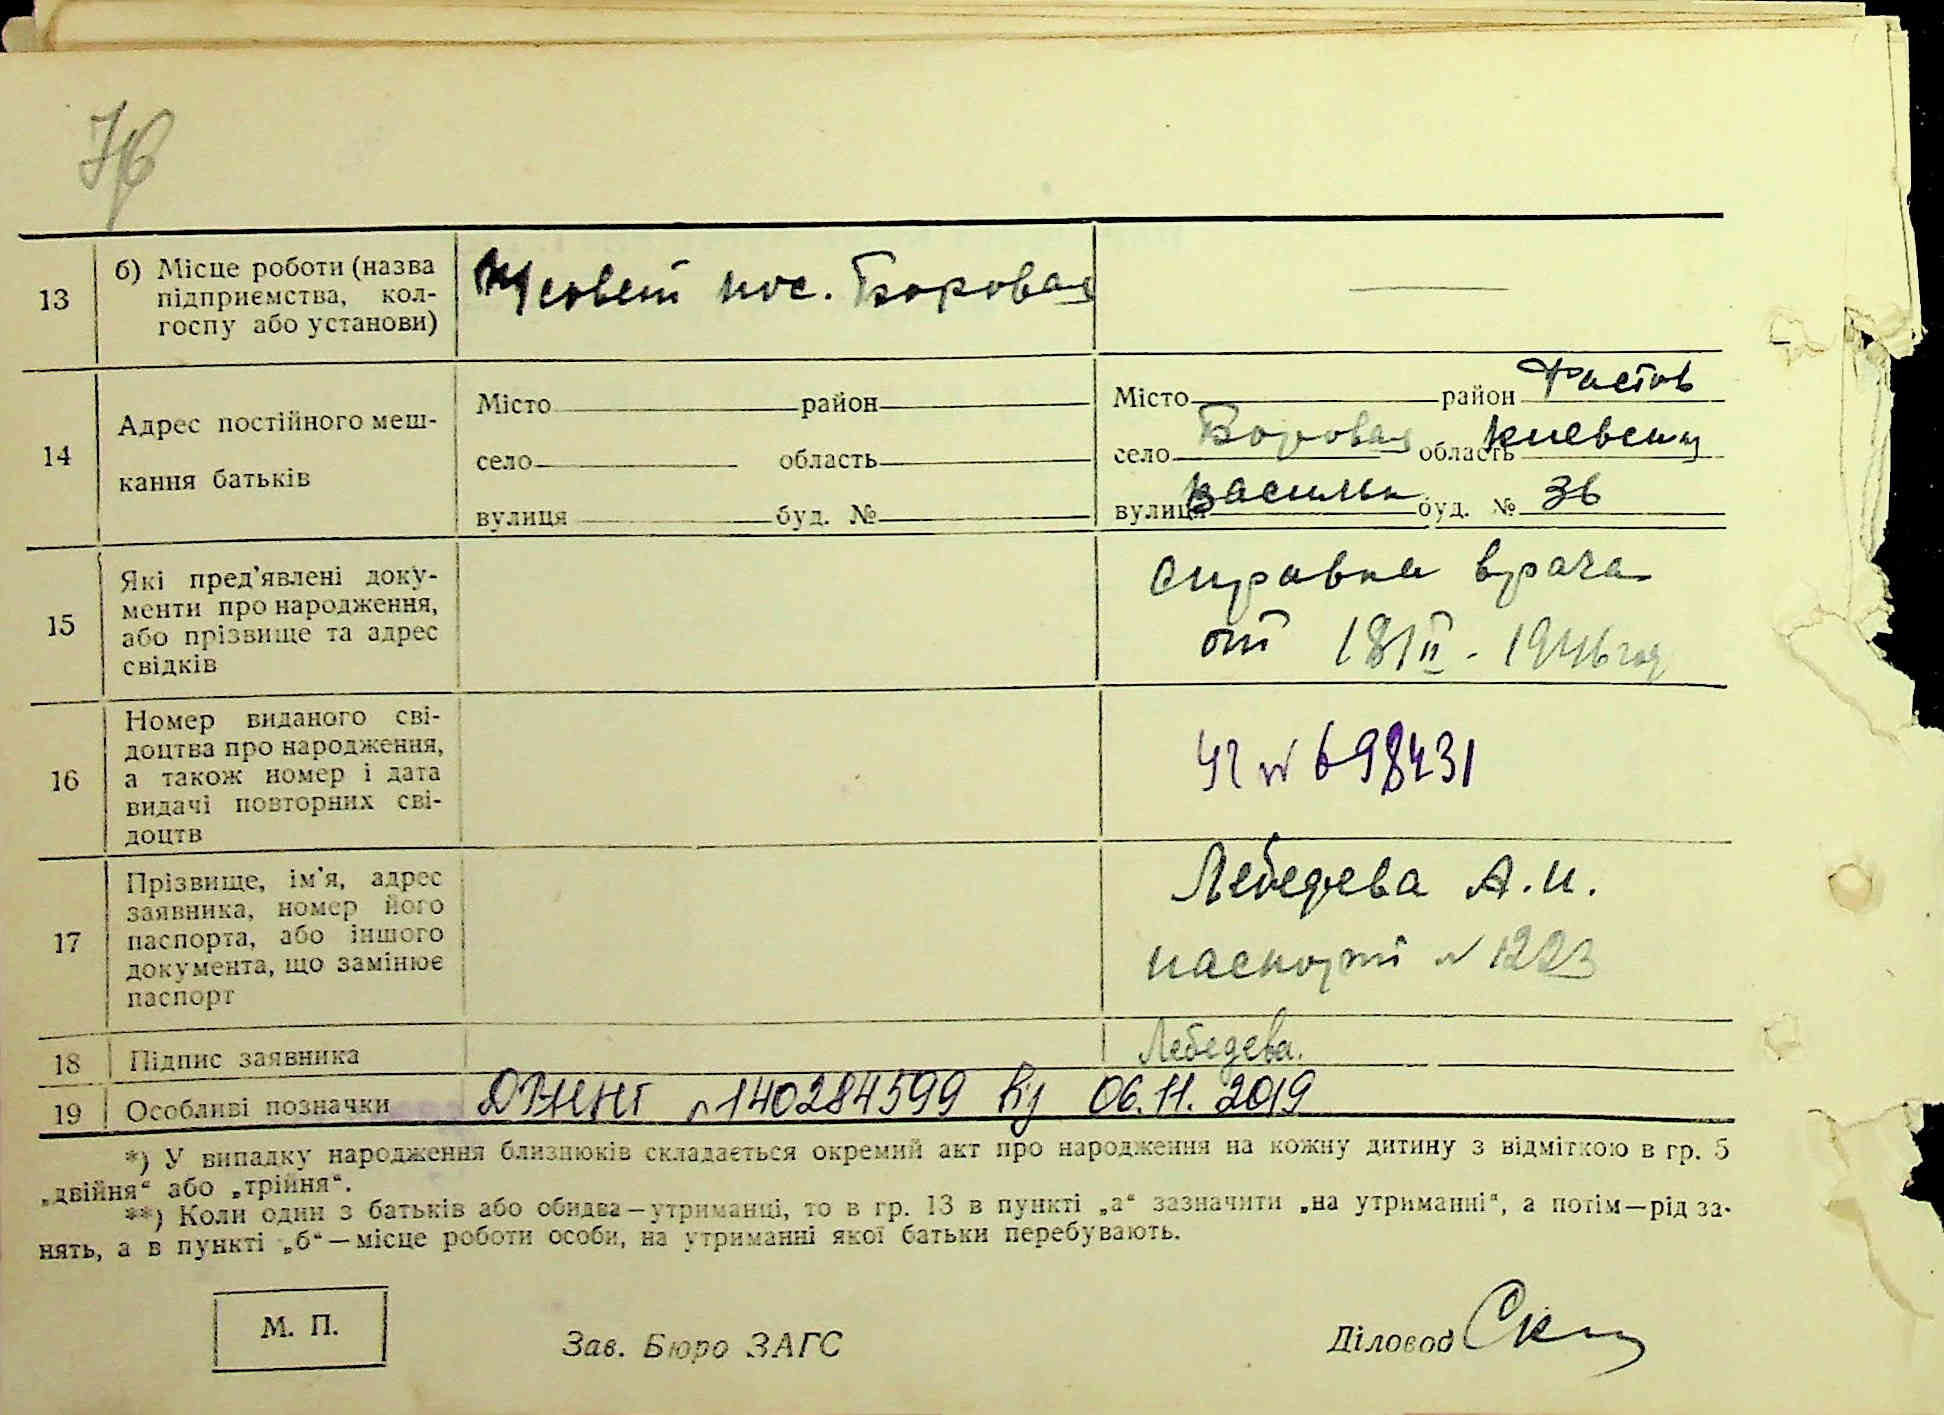 76
13
б) Місце роботи (назва
підприємства, кол-
госпу або установи)
пос. Боровая
14
Адрес постійного меш-
кання батьків
Місто район
село область
вулиця буд. №
Місто район Фастов
село Боровая область Киевски
вулиця Васильк буд. № 36
15
Які пред'явлені доку-
менти про народження,
або прізвище та адрес
свідків
Справка врача
от 18/II - 1946 год
16
Номер виданого сві-
доцтва про народження,
а також номер і дата
видачі повторних сві-
доцтв
№ 698431
17
Прізвище, ім'я, адрес
заявника, номер його
паспорта, або іншого
документа, що замінює
паспорт
Лебедева А. И.
паспорт № 1223
18 Підпис заявника Лебедева.
19 Особливі позначки №140284599 від 06.11.2019
*) У випадку народження близнюків складається окремий акт про народження на кожну дитину з відміткою в гр. 5
„двійня“ або „трійня“.
**) Коли один з батьків або обидва—утриманці, то в гр. 13 в пункті „а“ зазначити „на утриманні“, а потім—рід за-
нять, а в пункті „б“—місце роботи особи, на утриманні якої батьки перебувають.
М. П.
Зав. Бюро ЗАГС
Діловод